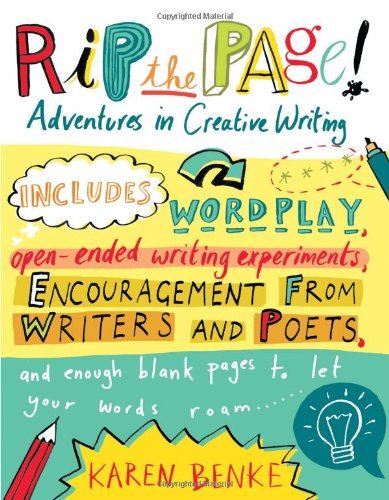 Copyrighted Material
RiP the PAGe!
Adventures in Creative Writing
INCLUDES
WORDPLAY,
open-ended writing experiments,
ENCOURAGEMENT FROM
WRITERS AND POETS,
and enough blank pages to let
your words roam.......
KAREN BENKE
Copyrighted Material